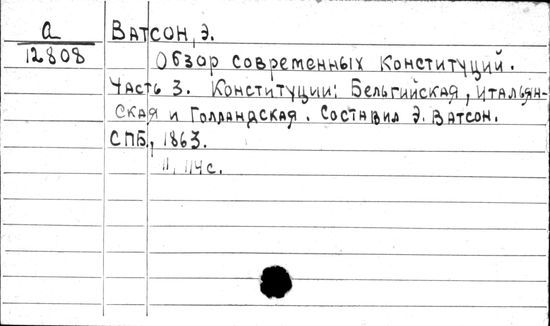 a
12808
Ватсон, Э.
Обзор современных Конституций.
Часть 3. Конституции: Бельгийская, итальян-
ская и Голландская. Составил Э. Ватсон.
СПБ, 1863.
II, 114 с.